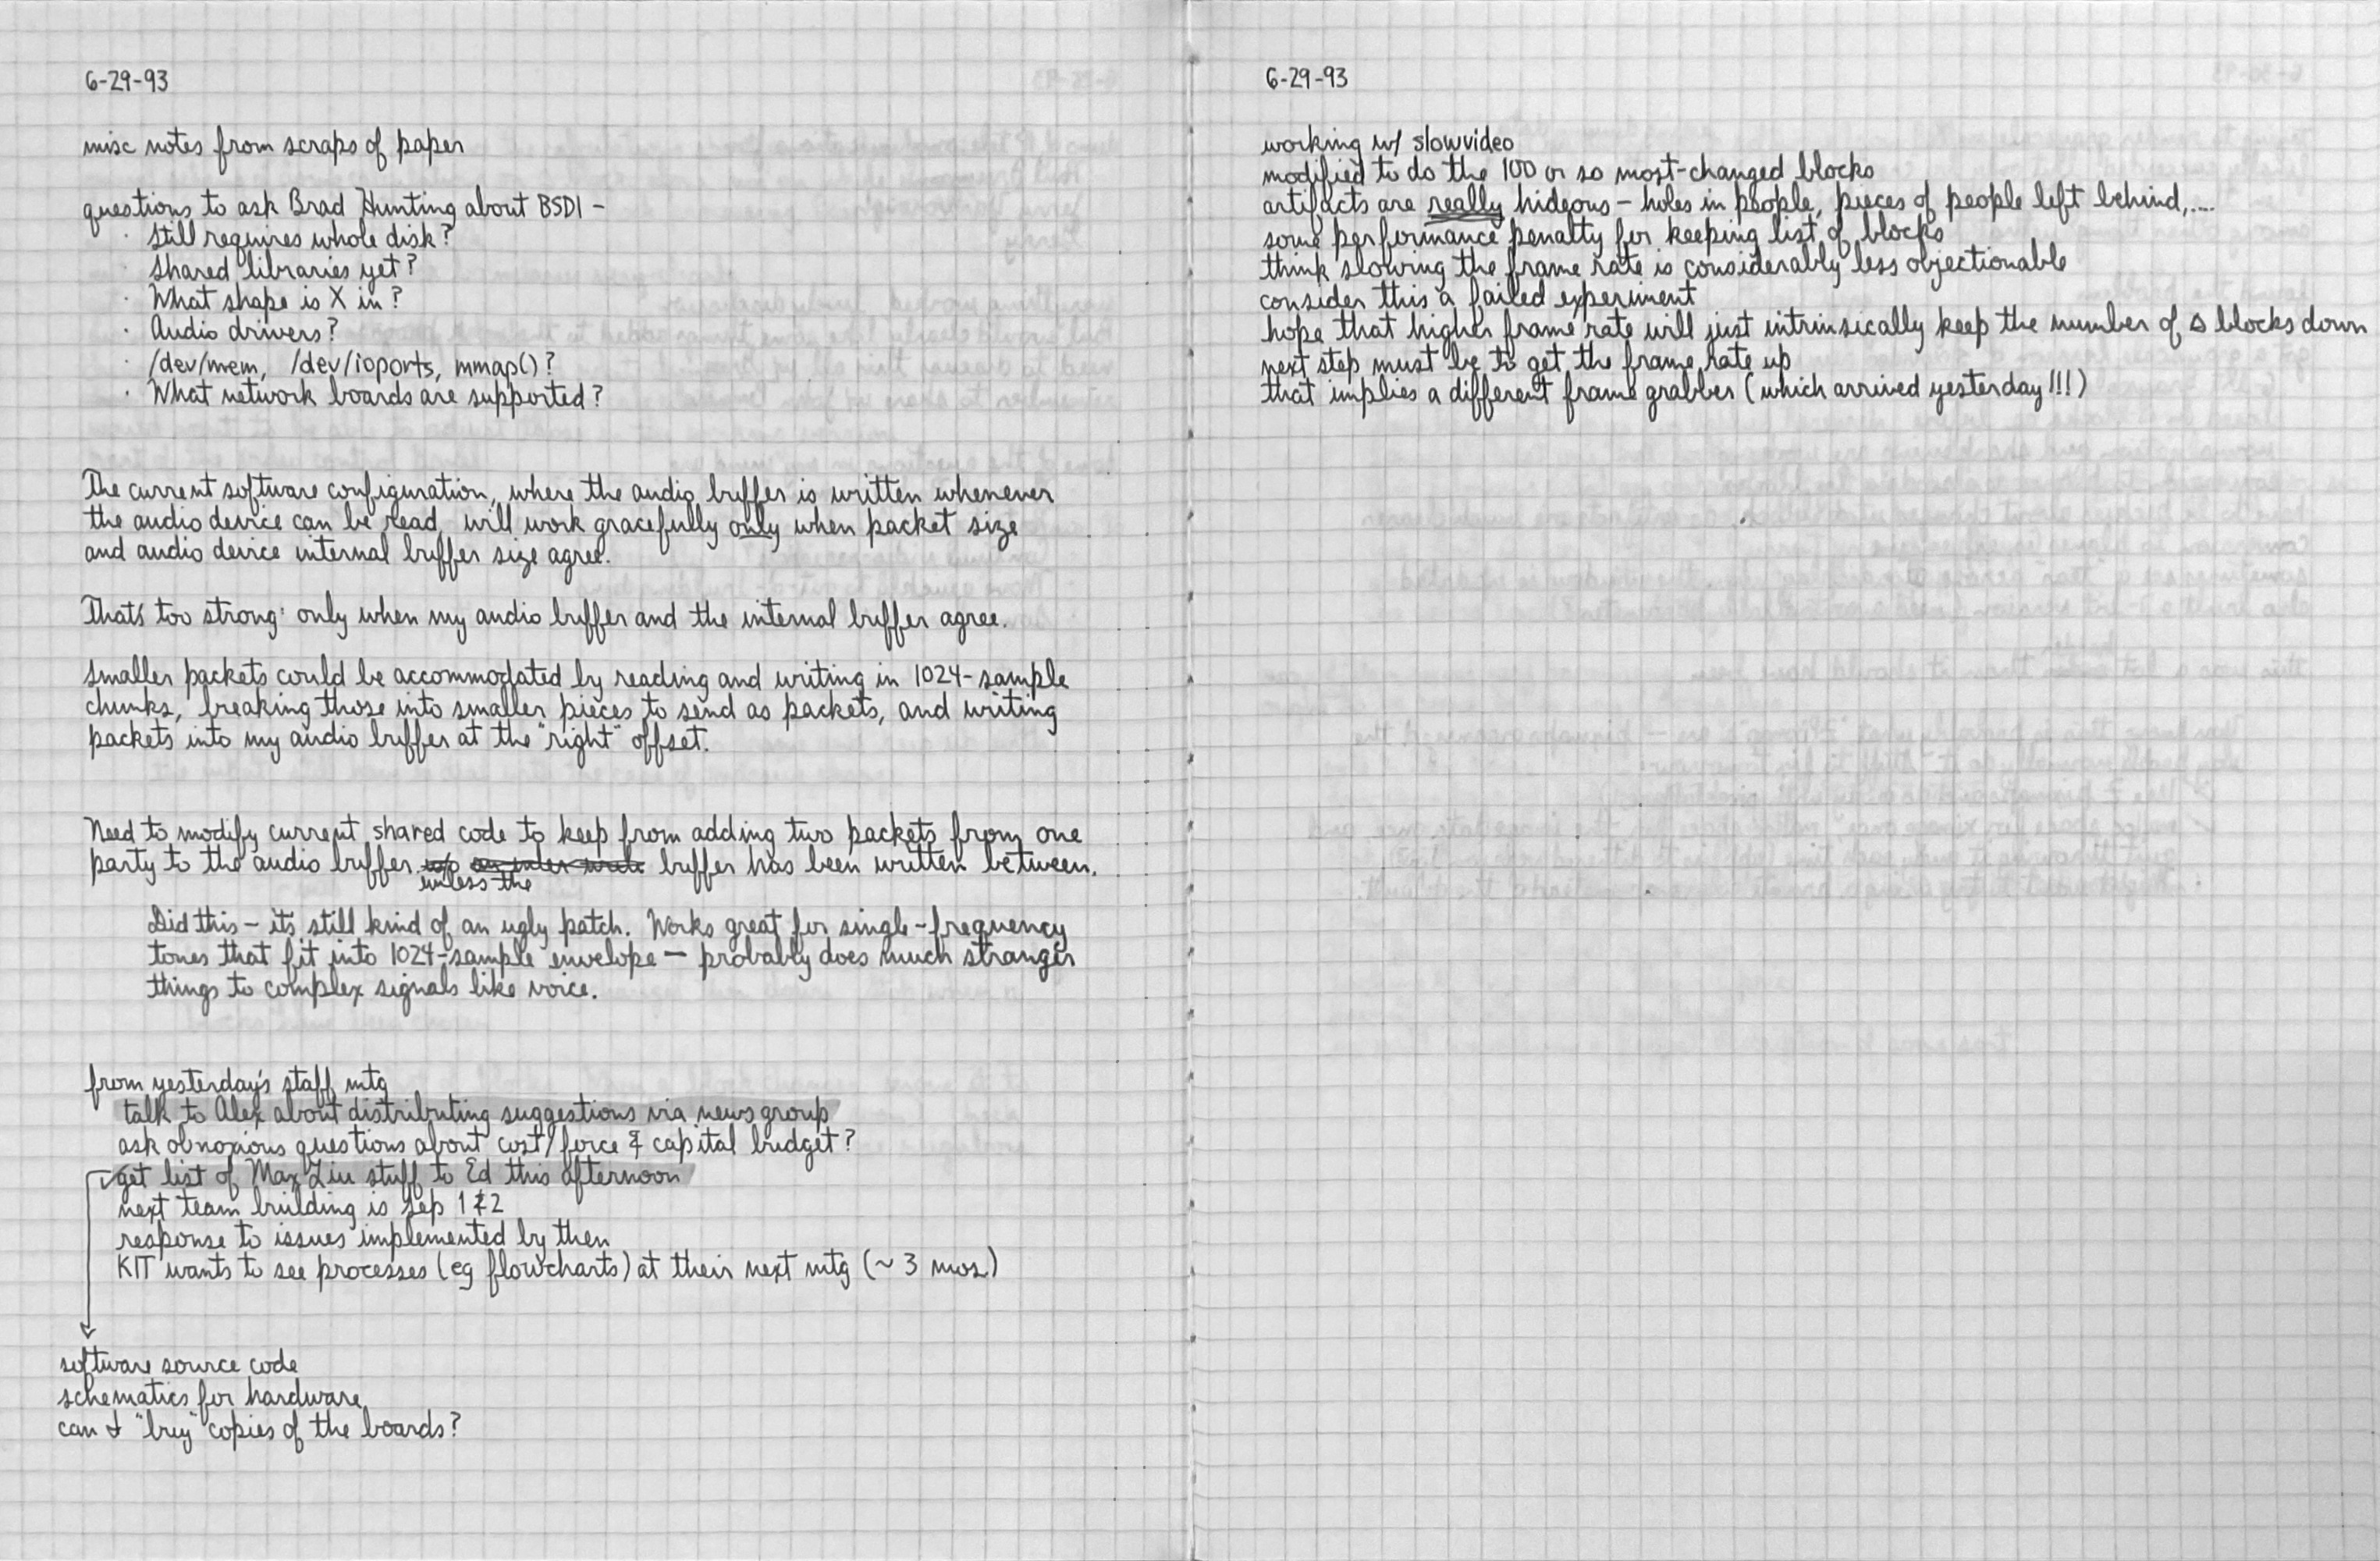 6-29-93
misc notes from scraps of paper
questions to ask Brad Hunting about BSDI -
· Still requires whole disk?
· Shared libraries yet?
· What shape is X in?
· Audio drivers?
· /dev/mem, /dev/ioports, mmap()?
· What network boards are supported?
The current software configuration, where the audio buffer is written whenever
the audio device can be read, will work gracefully only when packet size
and audio device internal buffer size agree.
That's too strong: only when my audio buffer and the internal buffer agree.
Smaller packets could be accommodated by reading and writing in 1024-sample
chunks, breaking those into smaller pieces to send as packets, and writing
packets into my audio buffer at the "right" offset.
Need to modify current shared code to keep from adding two packets from one
party to the audio buffer unless the buffer has been written between.
Did this - it's still kind of an ugly patch. Works great for single-frequency
tones that fit into 1024-sample envelope - probably does much stranger
things to complex signals like voice.
from yesterday's staff mtg
talk to Alex about distributing suggestions via newsgroup
ask obnoxious questions about cost/force & capital budget?
✓get list of Max Liu stuff to Ed this afternoon
next team building is Sep 1 & 2
response to issues implemented by then
KIT wants to see processes (eg flowcharts) at their next mtg (~ 3 mos.)
software source code
schematics for hardware
can I "buy" copies of the boards?
6-29-93
working w/ slowvideo
modified to do the 100 or so most-changed blocks
artifacts are really hideous - holes in people, pieces of people left behind,....
some performance penalty for keeping list of blocks
think slowing the frame rate is considerably less objectionable
consider this a failed experiment
hope that higher frame rate will just intrinsically keep the number of Δ blocks down
next step must be to get the frame rate up
that implies a different frame grabber (which arrived yesterday!!!)